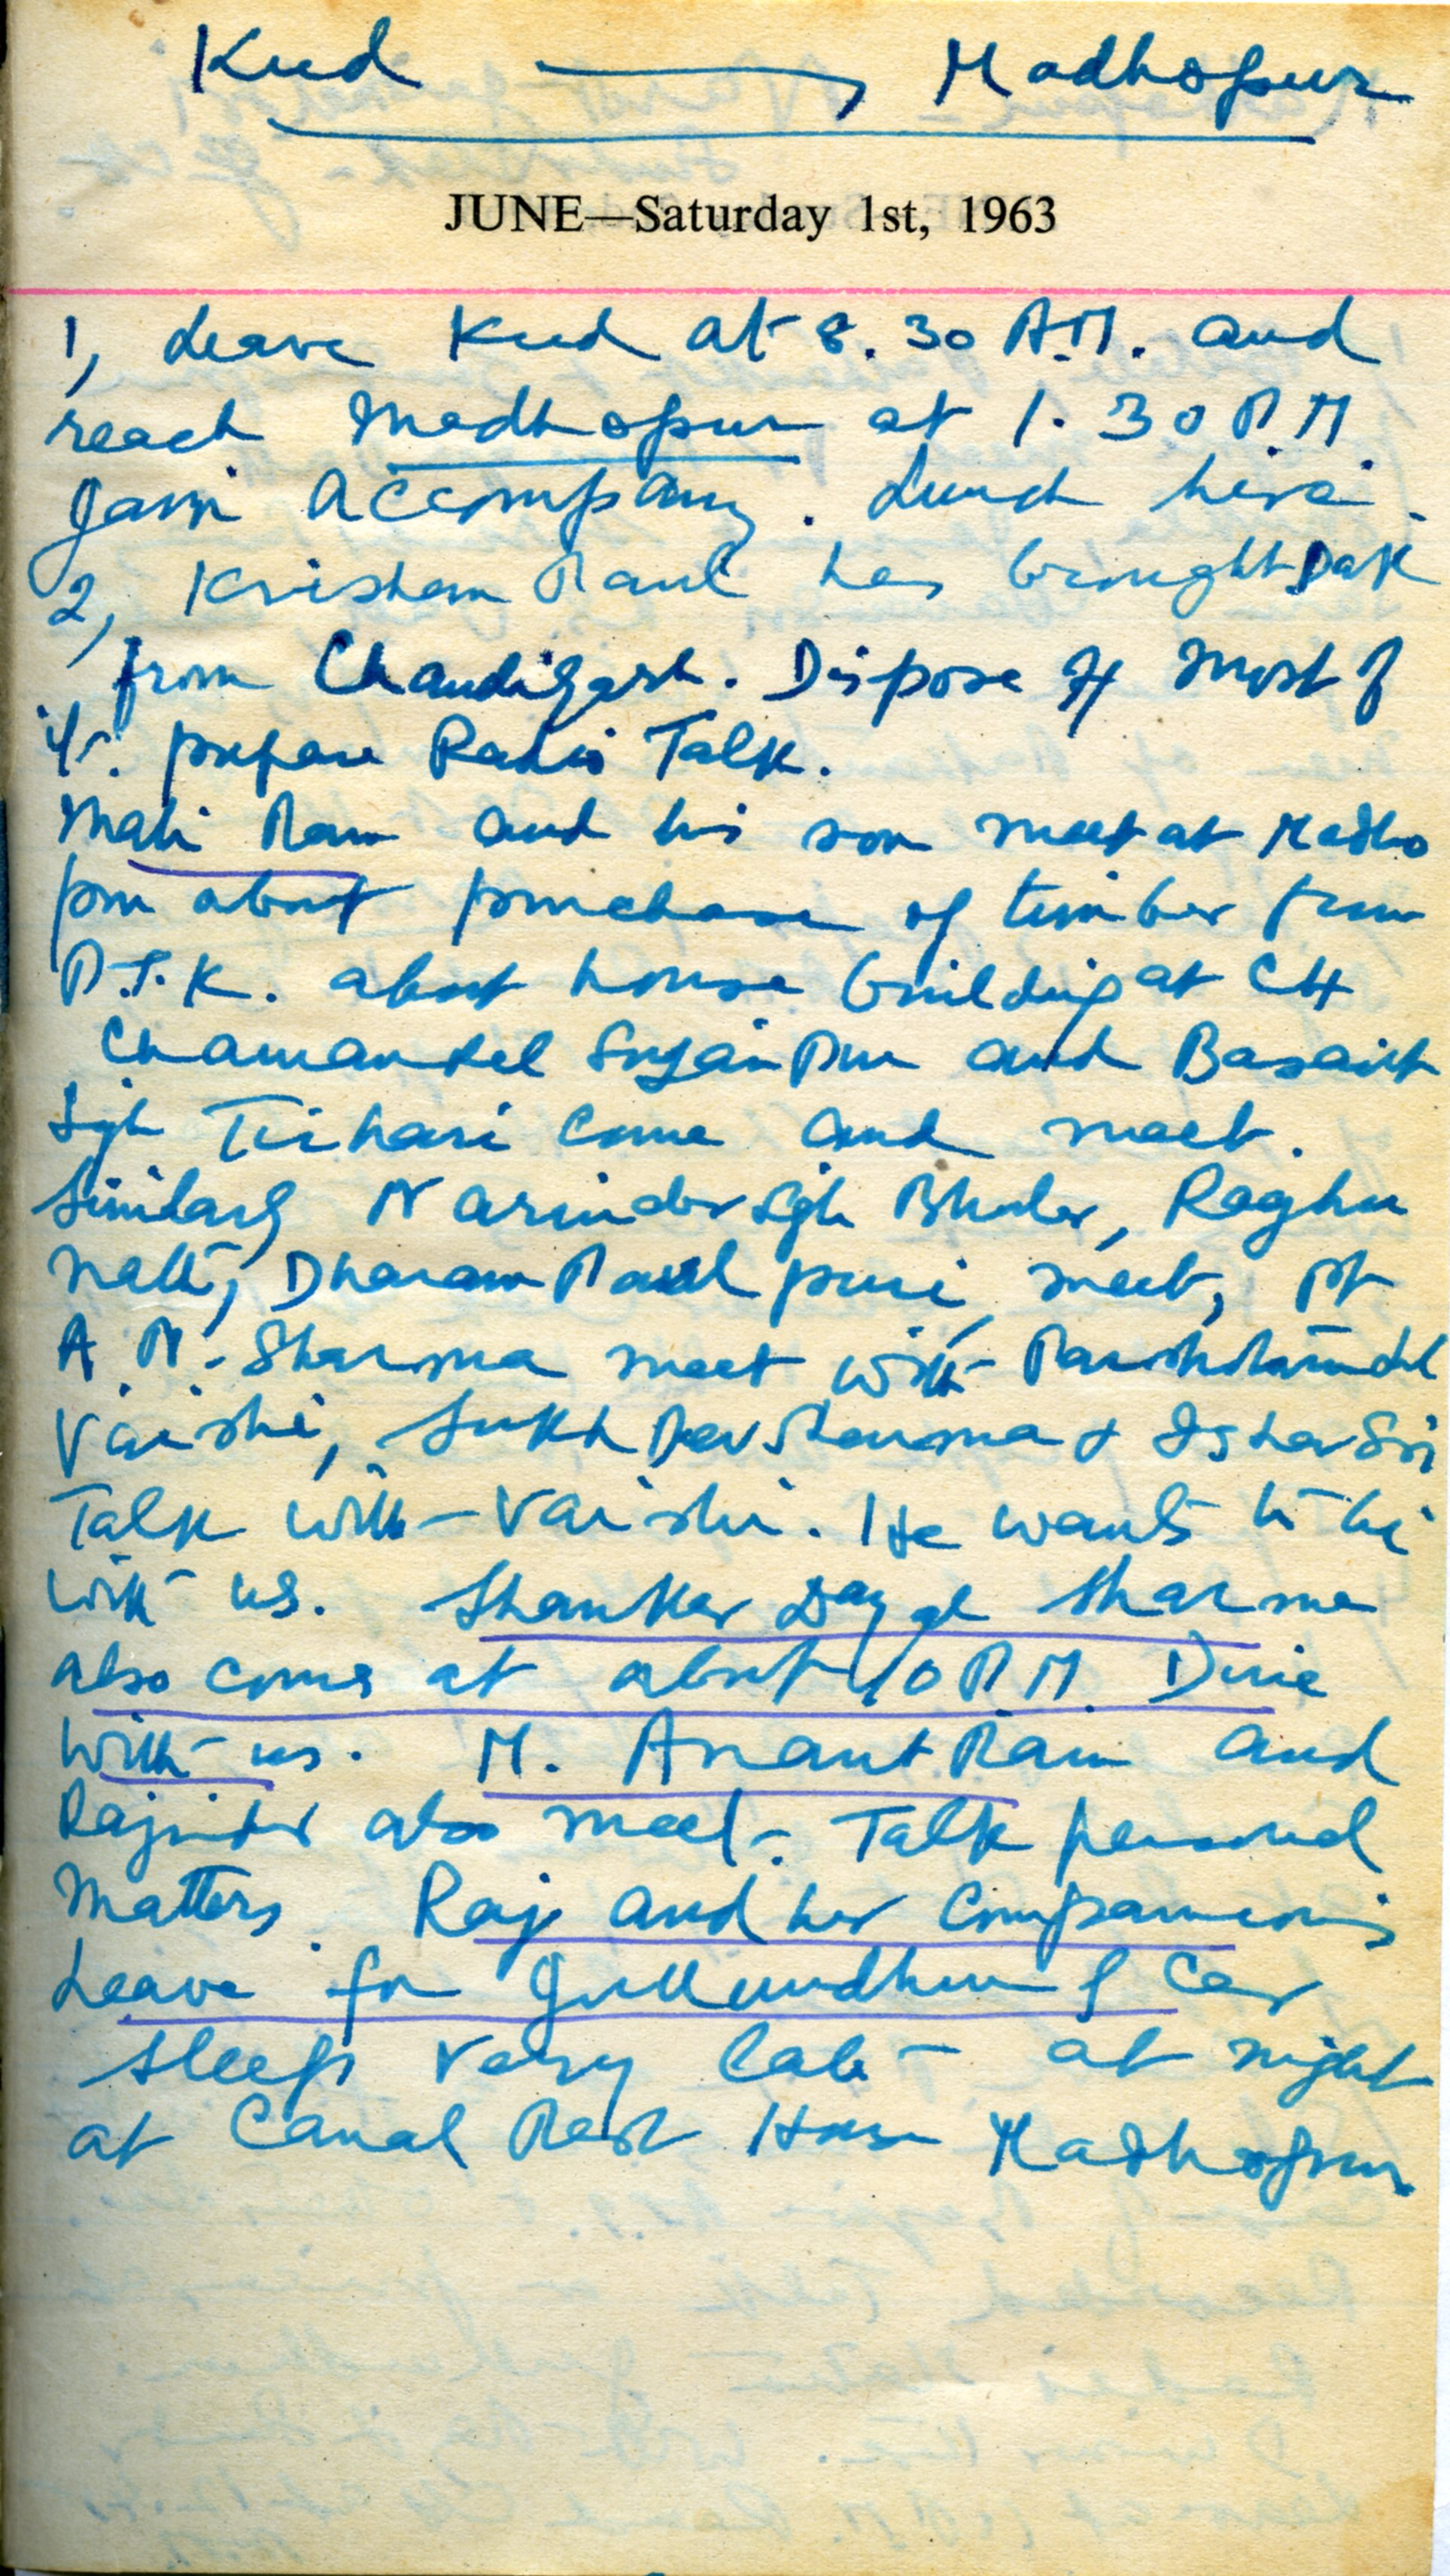 Kud → Madhopur
JUNE—Saturday 1st, 1963
1, Leave Kud at 8.30 A.M. and
reach Madhopur at 1.30 P.M
accompany. Lunch here.
2, Krishan Paul has brought Dak
from Chandigarh. Dispose of most of
it. prepare Radio Talk.
Ram and his son meet at Madho
pur about purchase of timber from
P.T.K. about house building at CH
Chamanlal Sujanpur and Basant
Sgh Tirhari come and meet.
Similarly Narinder Sgh, Raghu
Nath, Dharam Paul puri, meet, Pt
A. N. Sharma meet with
Vaishi, Sukh Dev Sharma &
Talk with Vaishi. He wants to be
with us. Shanker Dayal Sharma
also comes at about 10 P.M. Dine
with us. M. Anant Ram and
Rajinder also meet. Talk personal
Matters. Raj and her Companions
Leave for Jullundhur by Car
Sleep very late at night
at Canal Rest House Madhopur